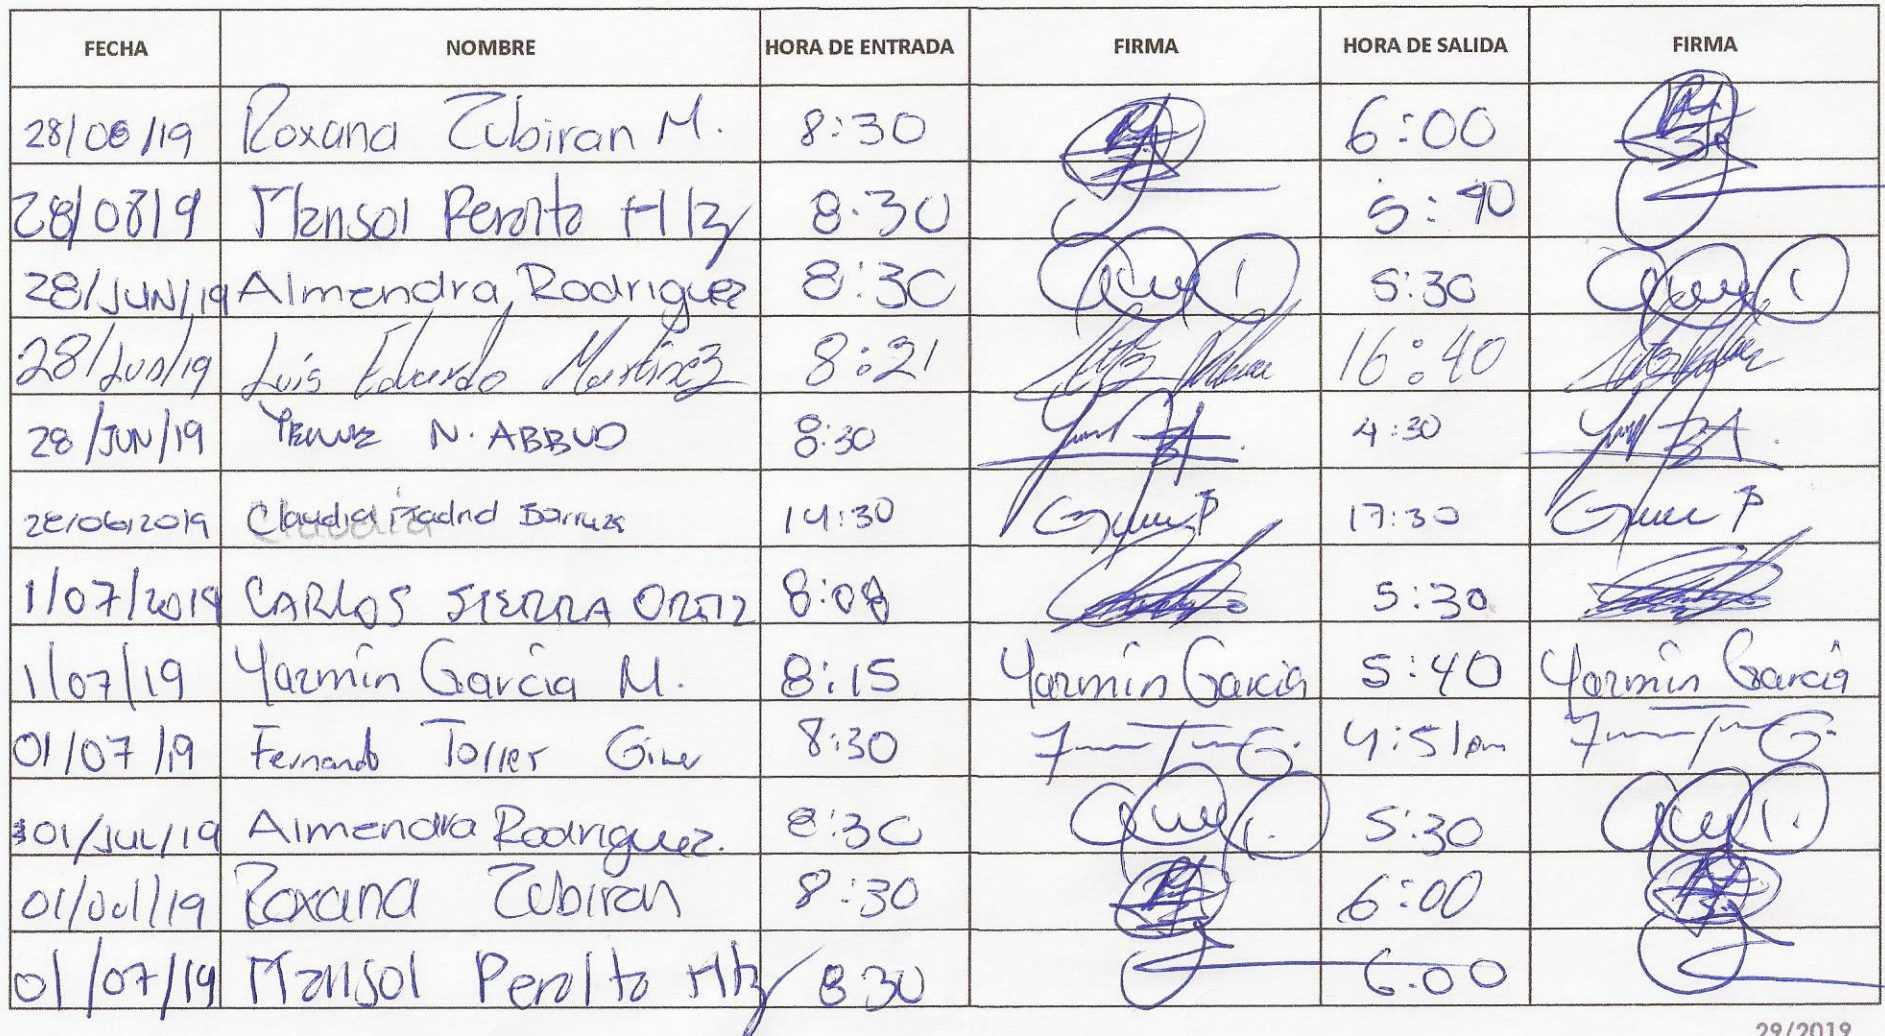 FECHA NOMBRE HORA DE ENTRADA FIRMA HORA DE SALIDA FIRMA
28/06/19 Roxana Zubiran M. 8:30 6:00
28/0819 Marisol Peralta Htz 8:30 5:40
28/JUN/19 Almendra Rodriguez 8:30 5:30
28/Jun/19 Luis Eduardo Martinez 8:21 16:40
28/JUN/19 N. ABBUD 8:30 4:30
28/06/2019 Claudia Madrid Barraza 14:30 17:30
1/07/2019 CARLOS SIERRA ORTIZ 8:08 5:30
1/07/19 Yazmín García M. 8:15 Yazmín García 5:40 Yazmín García
01/07/19 Fernando Torres 8:30 4:51pm
01/JUL/19 Almendra Rodriguez. 8:30 5:30
01/Jul/19 Roxana Zubiran 8:30 6:00
01/07/19 Marisol Peralta Htz 8:30 6:00
29/2019